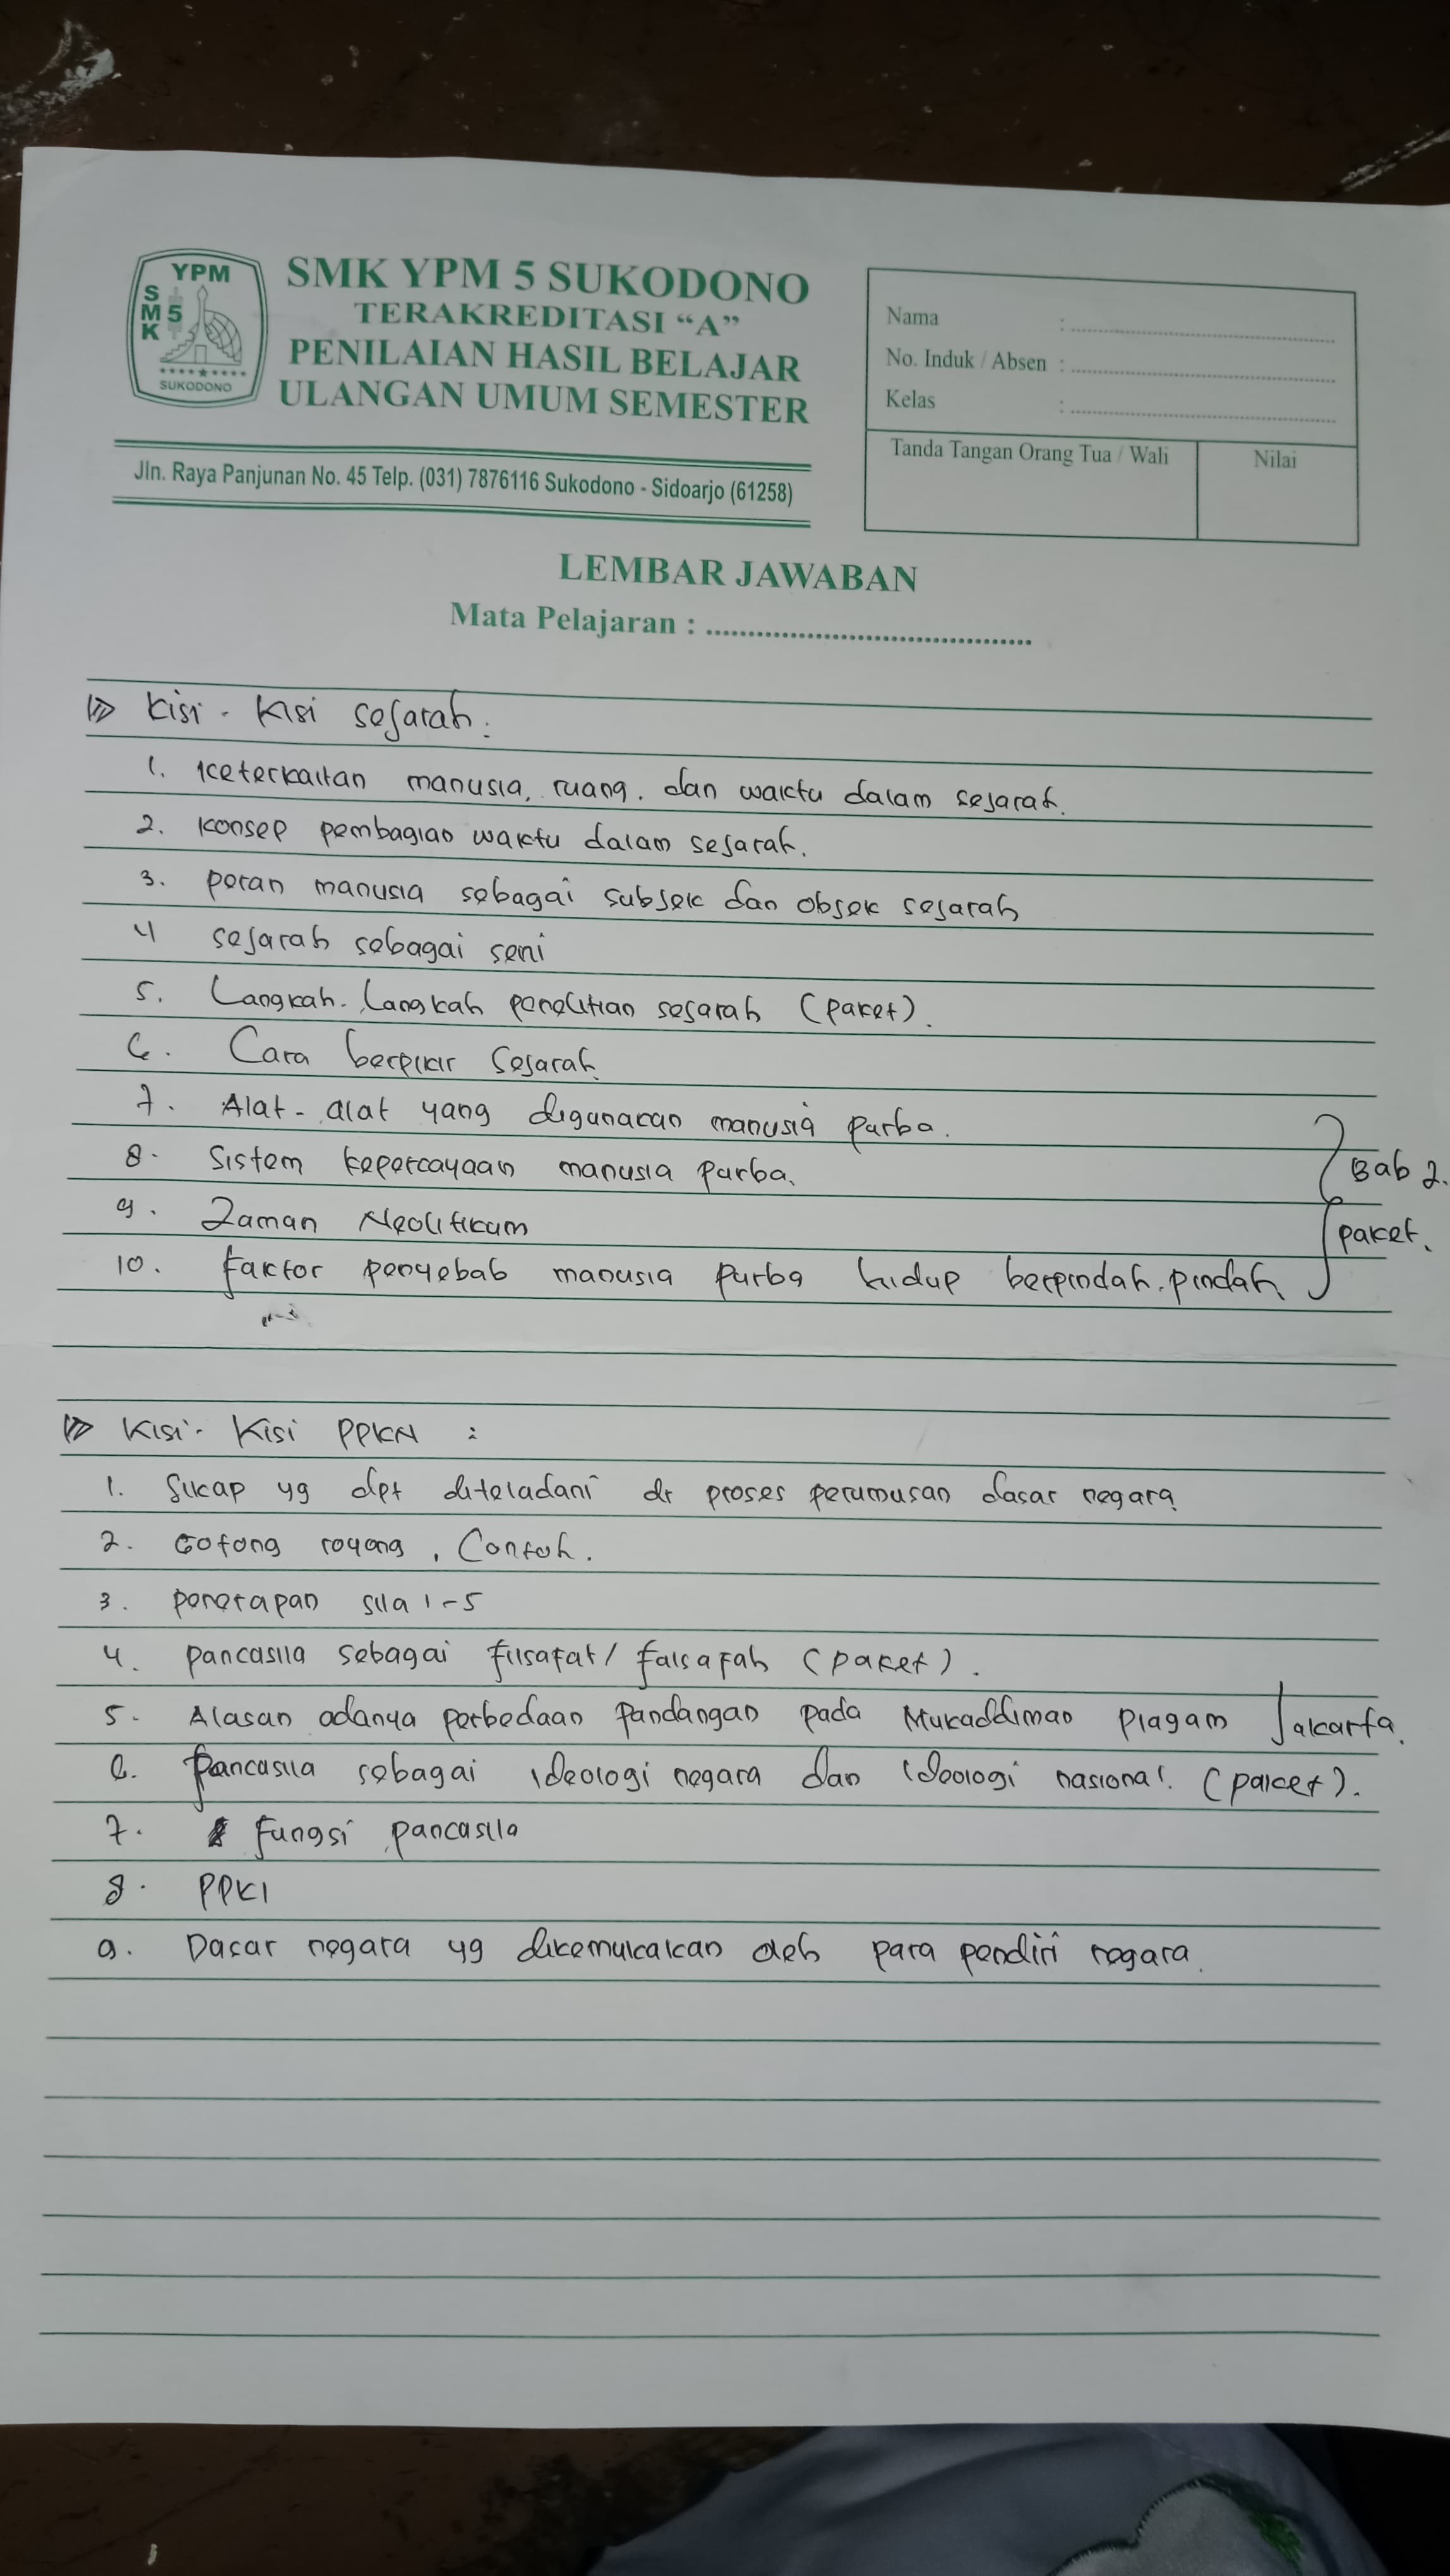 YPM
SMK 5
SUKODONO
SMK YPM 5 SUKODONO
TERAKREDITASI “A”
PENILAIAN HASIL BELAJAR
ULANGAN UMUM SEMESTER
Jln. Raya Panjunan No. 45 Telp. (031) 7876116 Sukodono - Sidoarjo (61258)
Nama :
No. Induk / Absen :
Kelas :
Tanda Tangan Orang Tua / Wali
Nilai
LEMBAR JAWABAN
Mata Pelajaran :
Kisi - Kisi sejarah :
1. Keterkaitan manusia, ruang, dan waktu dalam sejarah.
2. Konsep pembagian waktu dalam sejarah.
3. peran manusia sebagai subjek dan objek sejarah
4 sejarah sebagai seni
5. Langkah - Langkah penelitian sejarah (paket).
6. Cara berpikir sejarah.
7. Alat - alat yang digunakan manusia purba.
8. Sistem kepercayaan manusia purba.
9. Zaman Neolitikum
10. faktor penyebab manusia purba hidup berpindah-pindah.
Bab 2.
paket.
Kisi - Kisi PPKN :
1. Sikap yg dpt diteladani dr proses perumusan dasar negara.
2. Gotong royong, Contoh.
3. penerapan sila 1-5
4. pancasila sebagai filsafat/ falsafah (paket).
5. Alasan adanya perbedaan pandangan pada Mukaddimao Piagam Jakarta.
6. pancasila sebagai ideologi negara dan ideologi nasional. (paket).
7. fungsi pancasila
8. PPKI
9. Dasar negara yg dikemukakan oleh para pendiri negara.